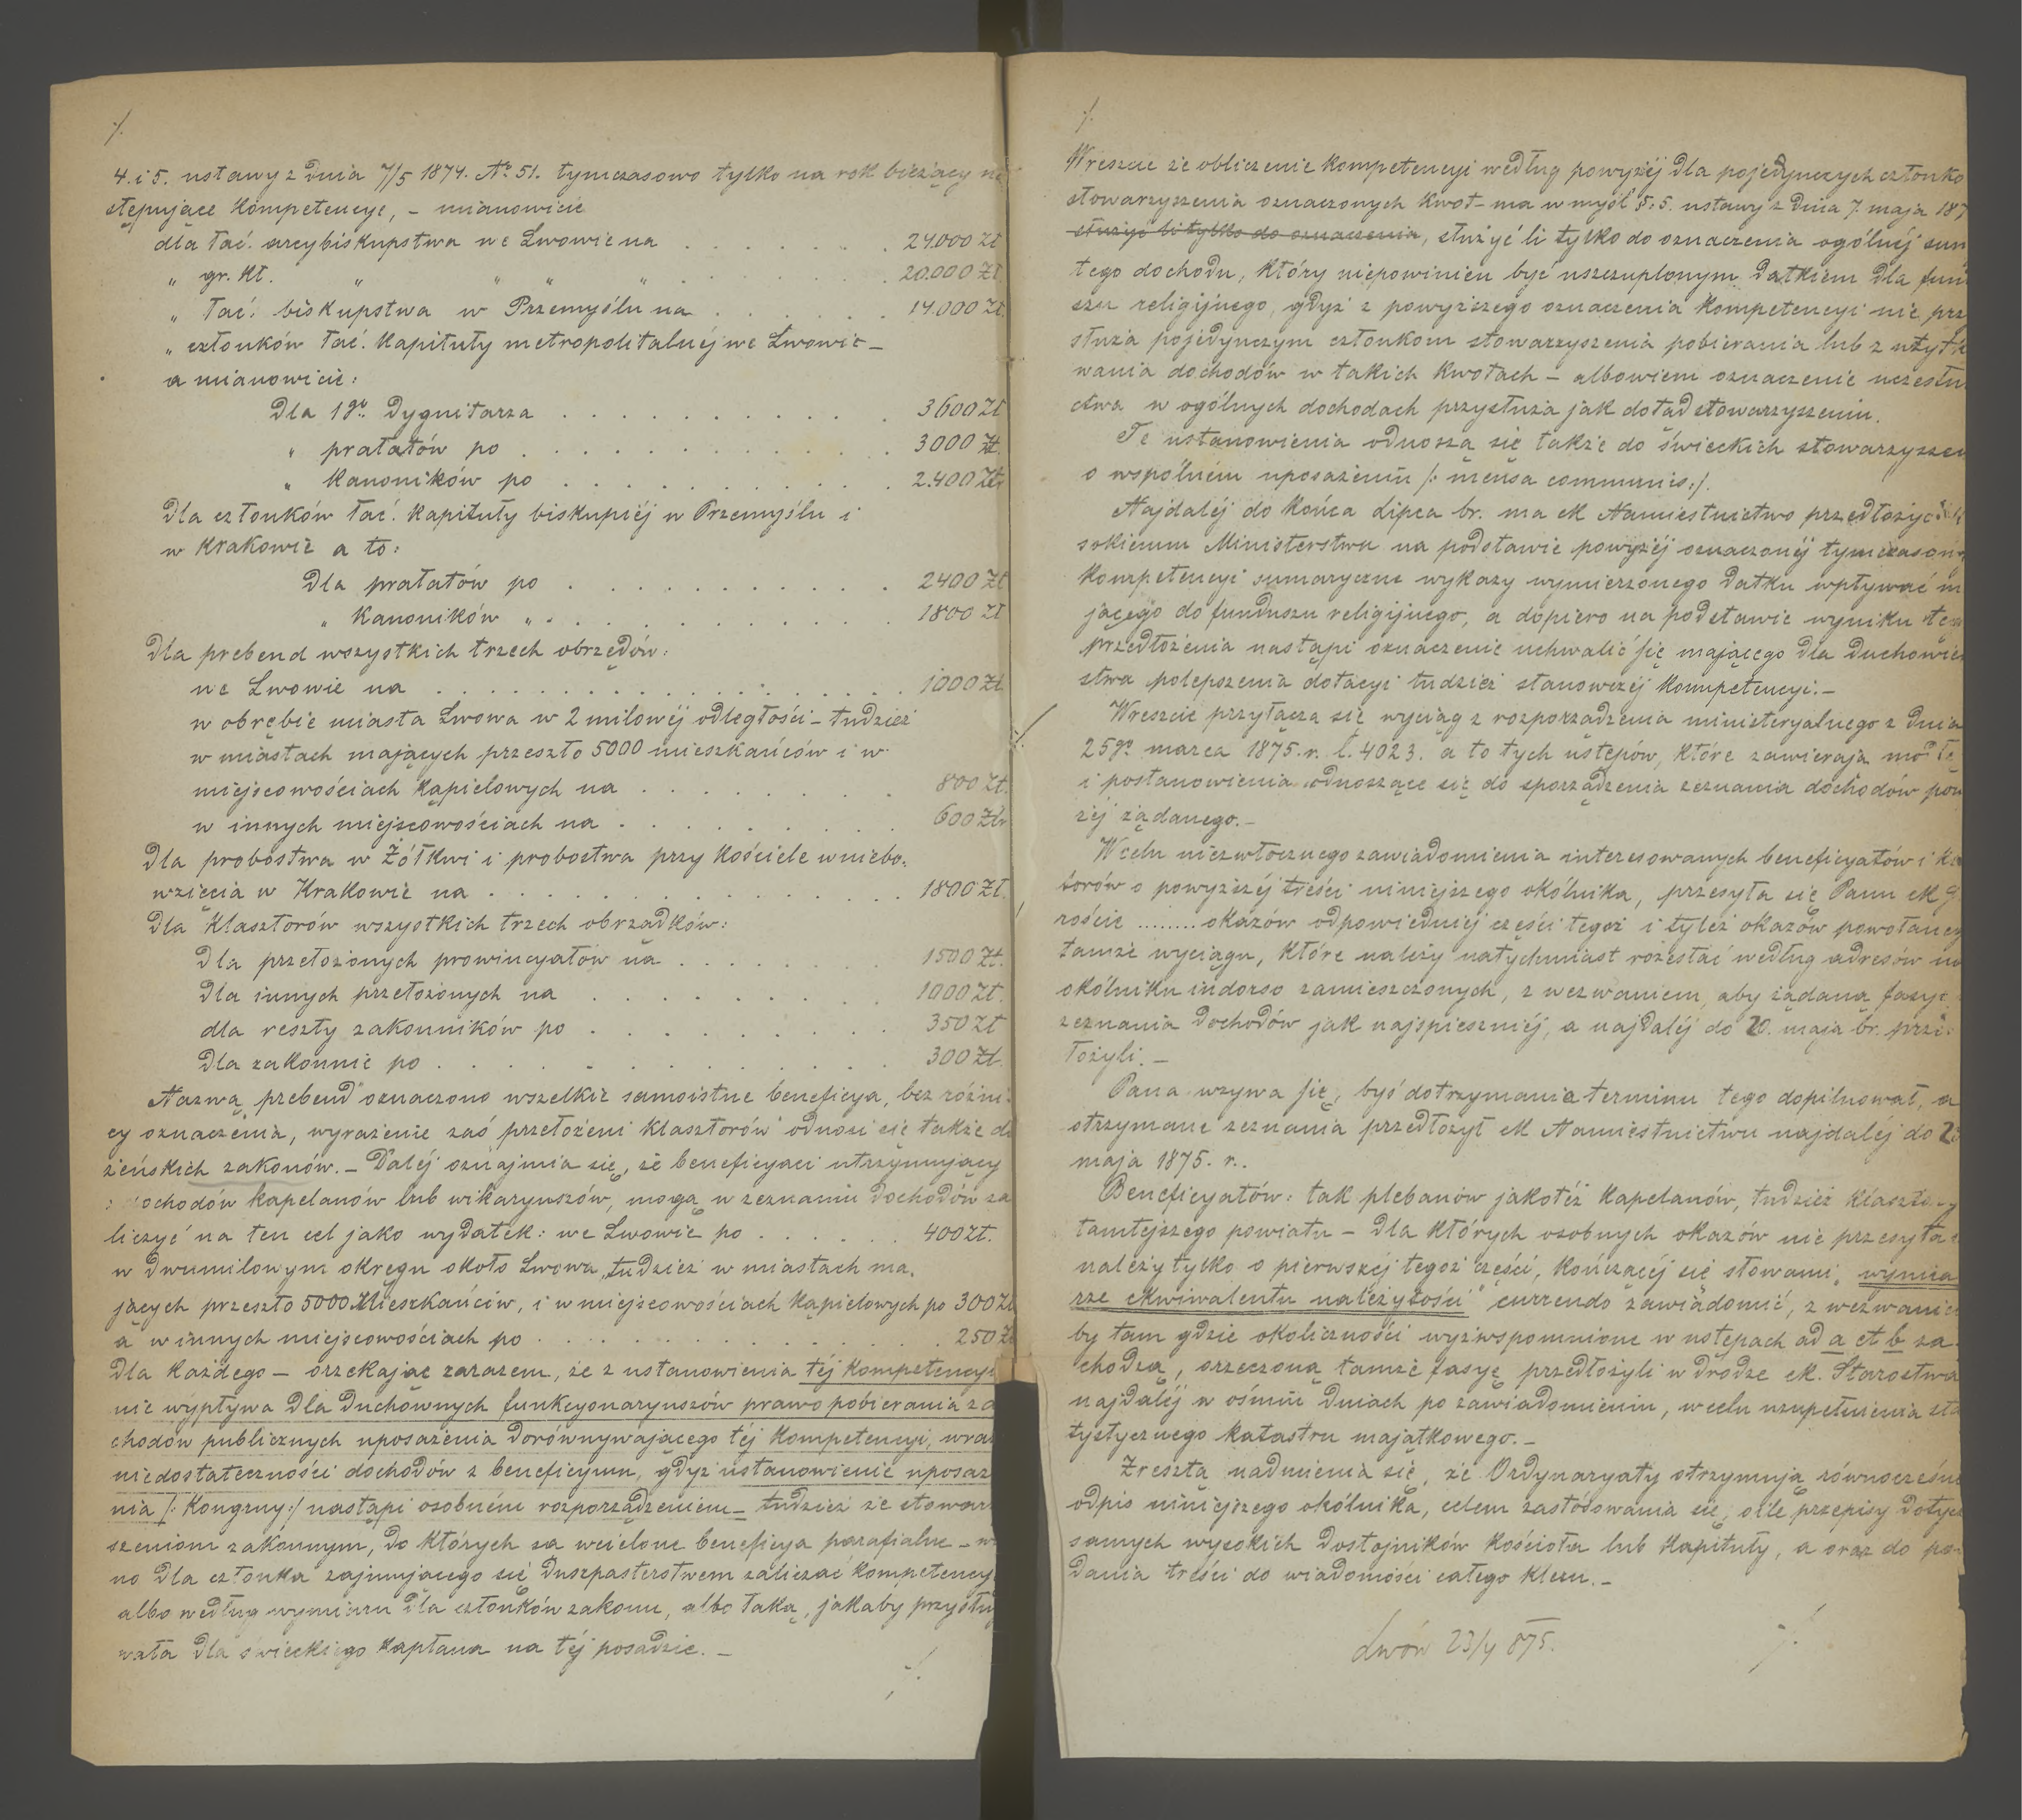 ./.
4. i 5. ustawy z dnia 7/5 1874. Nr 51. tymczasowo tylko na rok bieżący na
stępujące kompetencye, – mianowicie
dla łać. arcybiskupstwa we Lwowie na . . . . . . 24.000 zł
„ gr. kt. „ „ „ „ . . . . 20.000 zł.
„ łać: biskupstwa w Przemyślu na . . . . . . 14.000 zł.
„ członków łać. kapituły metropolitalnéj we Lwowie –
a mianowicie:
Dla 1go Dygnitarza . . . . . . . . . . 3600 zł
„ prałatów po . . . . . . . . . . . 3000 zł.
„ kanoników po . . . . . . . . . . 2.400 złr
Dla członków łać. kapituły biskupiéj w Przemyślu i
w Krakowie a to:
Dla prałatów po . . . . . . . . . . 2400 zł
„ kanoników „ . . . . . . . . . . 1800 zł
Dla prebend wszystkich trzech obrzędów:
we Lwowie na . . . . . . . . . . . . . . 1000 zł
w obrębie miasta Lwowa w 2 milowéj odległości – tudzież
w miastach mających przeszło 5000 mieszkańców i w
miejscowościach kąpielowych na . . . . . . . 800 zł.
w innych miejscowościach na . . . . . . . . 600 złr
Dla probostwa w Żółkwi i probostwa przy kościele wniebo:
wzięcia w Krakowie na . . . . . . . . . . . 1800 zł.
Dla klasztorów wszystkich trzech obrządków:
Dla przełożonych prowincyałów na . . . . . . 1500 zł.
Dla innych przełożonych na . . . . . . . . 1000 zł.
dla reszty zakonników po . . . . . . . . 350 zł
Dla zakonnic po . . . . . . . . . . . . 300 zł.
Nazwą „prebend" oznaczono wszelkie samoistne beneficya, bez różni:
cy oznaczenia, wyrażenie zaś przełożeni klasztorów" odnosi się także do
żeńskich zakonów. – Daléj oznajmia się, że beneficyaci utrzymujący
ochodów kapelanów lub wikaryuszów, mogą w zeznaniu dochodów za
liczyć na ten cel jako wydatek: we Lwowie po . . . . . . 400 zł.
w dwumilowym okręgu około Lwowa, tudzież w miastach ma,
jących przeszło 5000 Mieszkańców, i w miejscowościach kąpielowych po 300 zł
a w innych miejscowościach po . . . . . . . . . . . 250 zł
Dla każdego – orzekając zarazem, że z ustanowienia téj kompetencyi
nie wypływa Dla Duchownych funkcyonaryuszów prawo pobierania z d
chodów publicznych uposażenia dorównywającego téj kompetencyi, wraz
niedostateczności dochodów z beneficyum, gdyż ustanowienie uposaż
nia /: kongruy:/ nastąpi osobném rozporządzeniem – tudzież że stowarz
szeniom zakonnym, do których są wcielone beneficya parafialne – wo
no dla członka zajmującego się duszpasterstwem zaliczać kompetency
albo według wymiaru dla członków zakonu, albo taką, jakaby przysłu
wała dla świeckiego kapłana na téj posadzie. –
./.
./.
Wreszcie że obliczenie kompetencyi według powyżéj dla pojedynczych członkó
stowarzyszenia oznaczonych kwot – ma w myśl §: 5. ustawy z dnia 7. maja 187
służyć li tylko do oznaczenia, służyć li tylko do oznaczenia ogólnéj sum
tego dochodu, który niepowinien być uszczuplonym datkiem dla fun
szu religijnego, gdyż z powyższego oznaczenia kompetencyi nie prz
służa pojedynczym członkom stowarzyszenia pobierania lub z użytk
wania dochodów w takich kwotach – albowiem oznaczenie uczestn
ctwa w ogólnych dochodach przysłuża jak dotąd stowarzyszeniu.
Te ustanowienia odnoszą się także do świeckich stowarzyszeń
o wspólném uposażeniu /: mensa communis:/.
Najdaléj do końca Lipca br. ma ck Namiestnictwo przedłożyć
sokiemu Ministerstwu na podstawie powyżéj oznaczonéj tymczasow
kompetencyi sumaryczne wykazy wymierzonego datku wpływać m
jącego do funduszu religijnego, a dopiero na podstawie wyniku teg
przedłożenia nastąpi oznaczenie uchwalić się mającego dla duchowień
stwa polepszenia dotacyi tudzież stanowczéj kompetencyi. –
Wreszcie przyłącza się wyciąg z rozporządzenia ministeryalnego z dnia
25go marca 1875. r. l. 4023. a to tych ustępów, które zawierają modłę
i postanowienia odnoszące się do sporządzenia zeznania dochodów pow
żéj żądanego. –
W celu niezwłocznego zawiadomienia interesowanych beneficyatów i
torów o powyższéj treści niniejszego okólnika, przesyła się Panu ck
roście ......... okazów odpowiedniéj części tegoż i tyleż okazów powołaneg
tamże wyciągu, które należy natychmiast rozesłać według adresów na
okólniku indorso zamieszczonych, z wezwaniem, aby żądaną fasyę
zeznania dochodów jak najspieszniéj, a najdaléj do 20. maja br. prze:
łożyli. –
Pana wzywa się, byś dotrzymania terminu tego dopilnował, a
otrzymane zeznania przedłożył ck Namiestnictwu najdaléj do 25
maja 1875. r..
Beneficyatów: tak plebanów jakotéż kapelanów, tudzież klasztory
tamtejszego powiatu – dla których osobnych okazów nie przesyła
należy tylko o pierwszéj tegoż części, kończącéj się słowami „wymia
rze ekwiwalentu należytości" currendo zawiadomić, z wezwaniem
by tam gdzie okoliczności wyżwspomnione w ustępach ad a et b za:
chodzą, orzeczoną tamże fasyę przedłożyli w drodze ck. Starostwa
najdaléj w ośmiu dniach po zawiadomieniu, w celu uzupełnienia sta
tystycznego katastru majątkowego. –
Zresztą nadmienia się, że Ordynaryaty otrzymują równocześnie
odpis niniejszego okólnika, celem zastósowania się, o ile przepisy dotycz
samych wysokich dostojników kościoła lub kapituły, a oraz do po:
dania treści do wiadomości całego kleru. –
Lwów 23/4 875.
./.